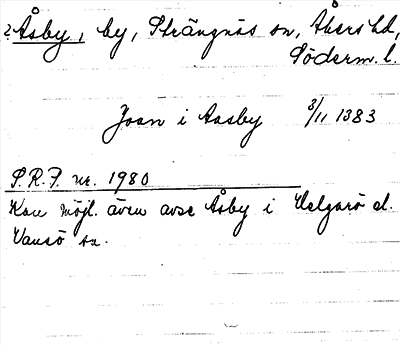 2. Åsby, by, Strängnäs sn, Åkers hd,
Söderm. l.
Joan i Aasby 3/11 1383
S.R.P. nr. 1980
Kan möjl. även avse Åsby i Helgarö el.
Vansö sn.